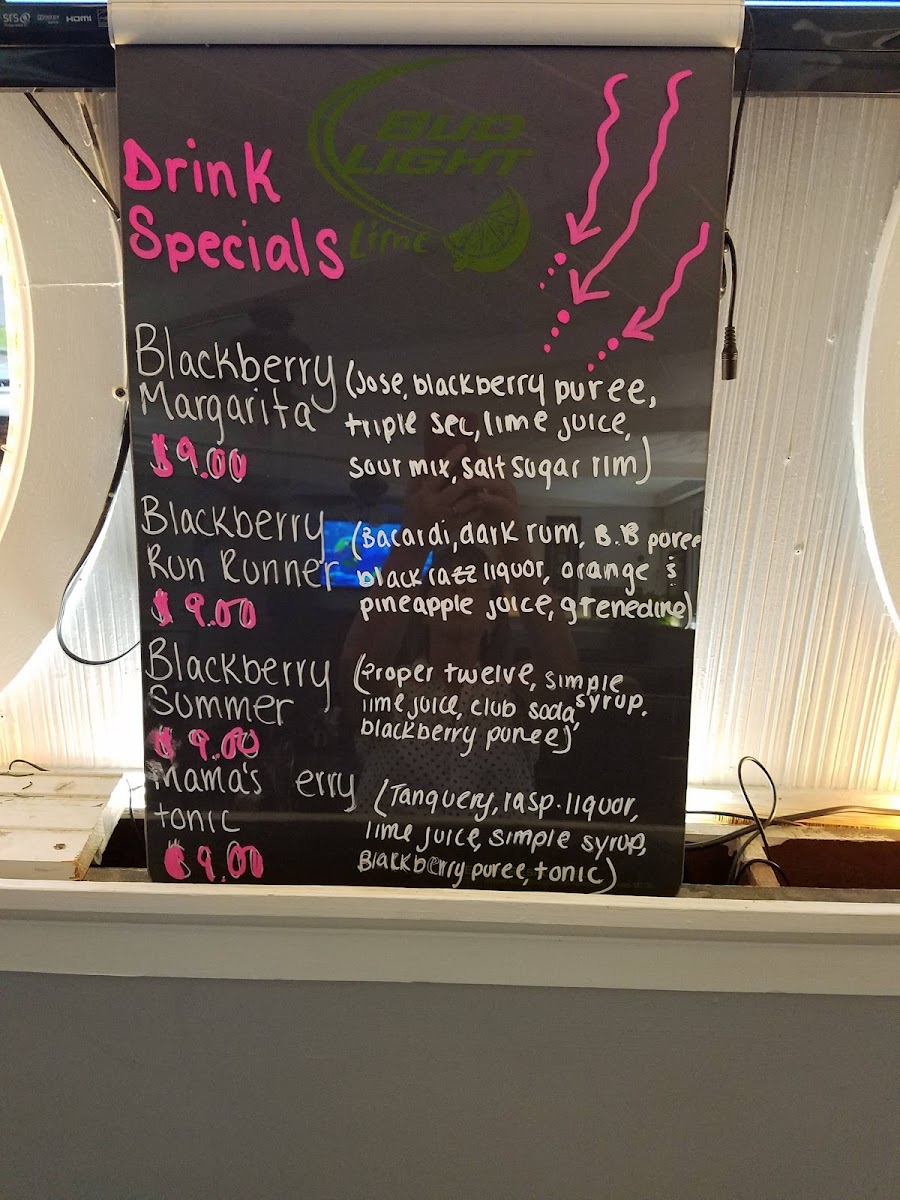 SRS DOLBY HDMI
BUD
LIGHT
Lime
Drink
Specials
Blackberry
Margarita
$9.00
(Jose, blackberry puree,
triple sec, lime juice,
sour mix, salt sugar rim)
Blackberry
Run Runner
$9.00
(Bacardi, dark rum, B.B puree
black razz liquor, orange &
pineapple juice, grenedine)
Blackberry
Summer
$9.00
(Proper twelve, simple
syrup,
lime juice, club soda,
blackberry puree)
Mama's erry
tonic
$9.00
(Tanquery, rasp. liquor,
lime juice, simple syrup,
Blackberry puree, tonic)